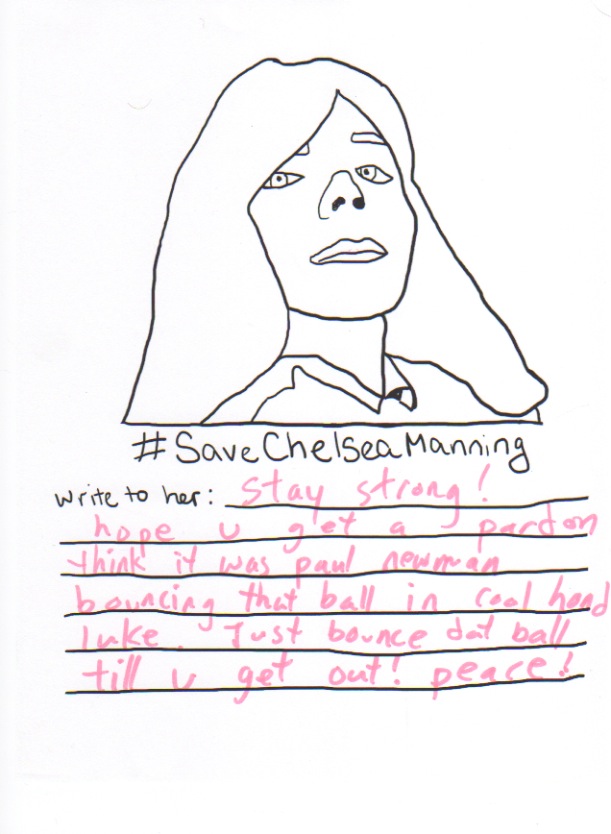 #SaveChelseaManning
write to her: Stay strong!
hope u get a pardon
think it was paul newman
bouncing that ball in cool hand
luke. Just bounce dat ball
till u get out! peace!